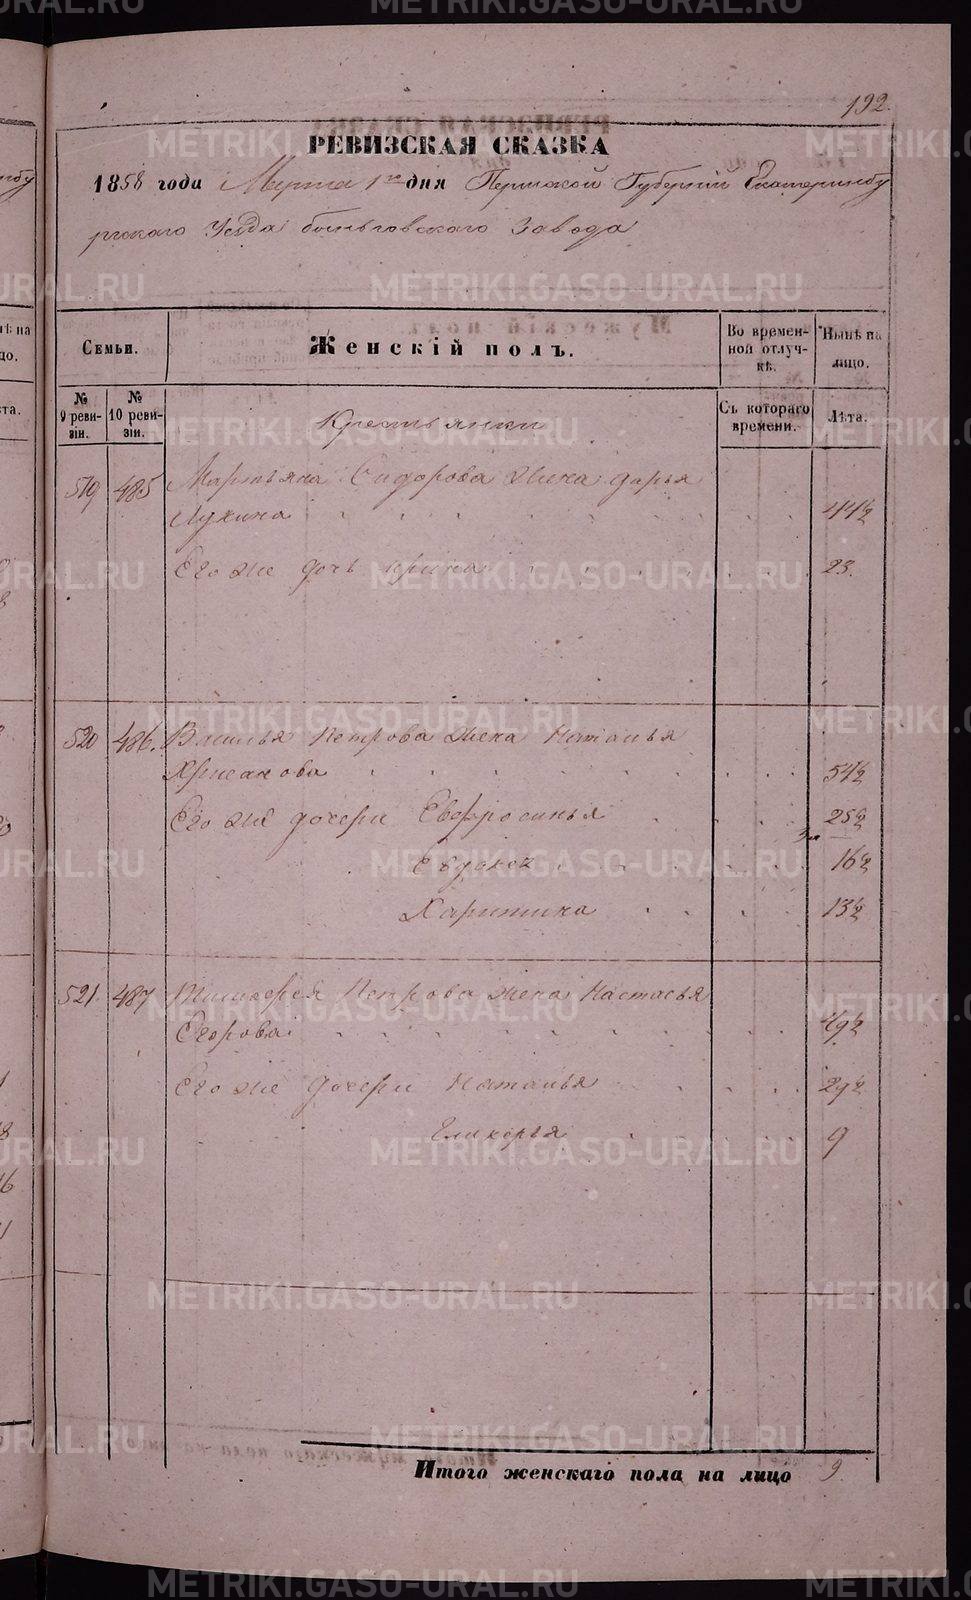 192.
РЕВИЗСКАЯ СКАЗКА
1858 года Марта 1го дня Пермской Губерніи Екатеринбу
ргскаго Уезда Быньговскаго Завода
Семьи.
Женскій полъ.
Во времен-
ной отлуч-
кѣ.
Нынѣ на
лицо.
№
9 реви-
зіи.
№
10 реви-
зіи.
Съ котораго
времени.
Лѣта.
Крестьянки
519 485 Мартьяна Сидорова жена дарья
Лукина 44½
Его же дочь ирина 23.
520 486. Василья Петрова жена Наталья
Хрисанова 54½
Его же дочери Евфросинья 25½
Евдокея 16½
Харитина 13½
521 487 Тимофея Петрова жена Настасья
Егорова 49½
Его же дочери Наталья 29½
Гликерья 9
Итого женскаго пола на лицо 9.
METRIKI.GASO-URAL.RU